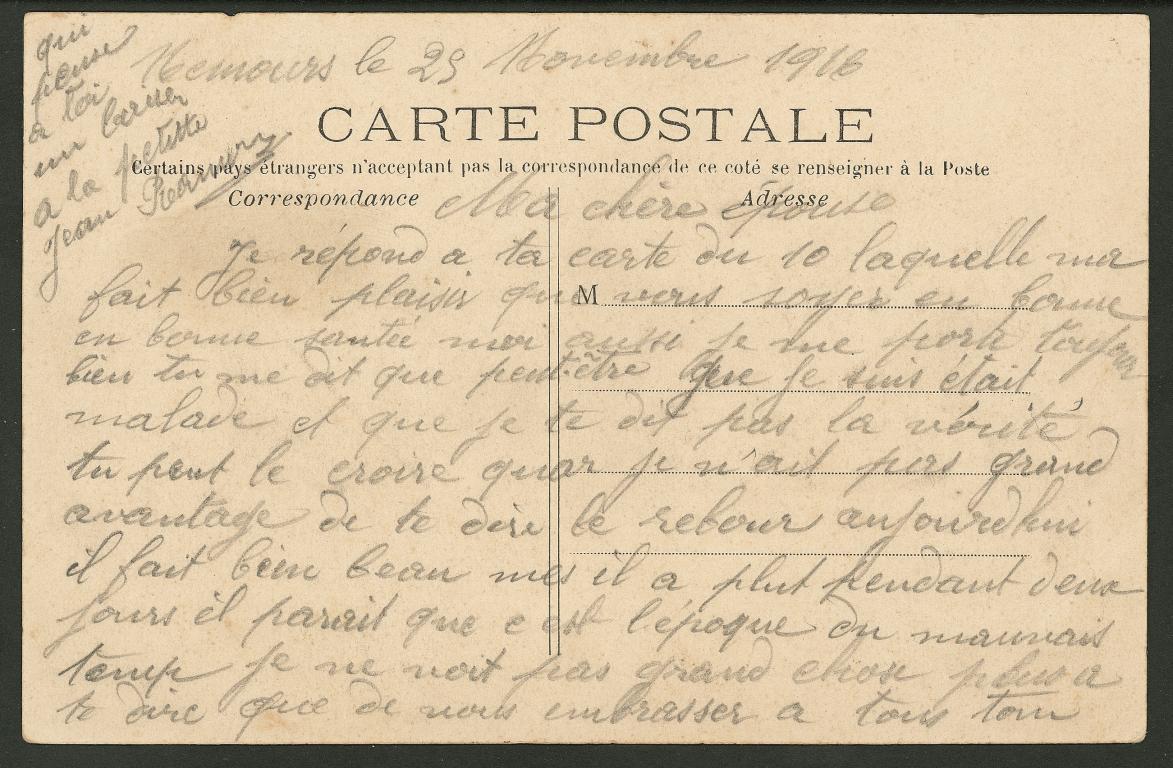 Nemours le 23 Novembre 1916
CARTE POSTALE
Certains pays étrangers n'acceptant pas la correspondance de ce coté se renseigner à la Poste
Correspondance
Adresse
M
Ma chère épouse
Je répond a ta carte du 10 laquelle ma
fait bien plaisir que vous soyer en bonne
en bonne santée moi aussi je me porte toujour
bien tu me dit que peut-être que je suis était
malade et que je te dit pas la vérité
tu peut le croire quar je n'ait pas grand
avantage de te dire le rebour aujourdhui
il fait bien beau mes il a plut pendant deux
jours il parait que c est l'époque du mauvais
temp je ne voit pas grand chose plus a
te dire que de vous embrasser a tous ton
qui
pense
a toi
un baiser
a la petite
Jean